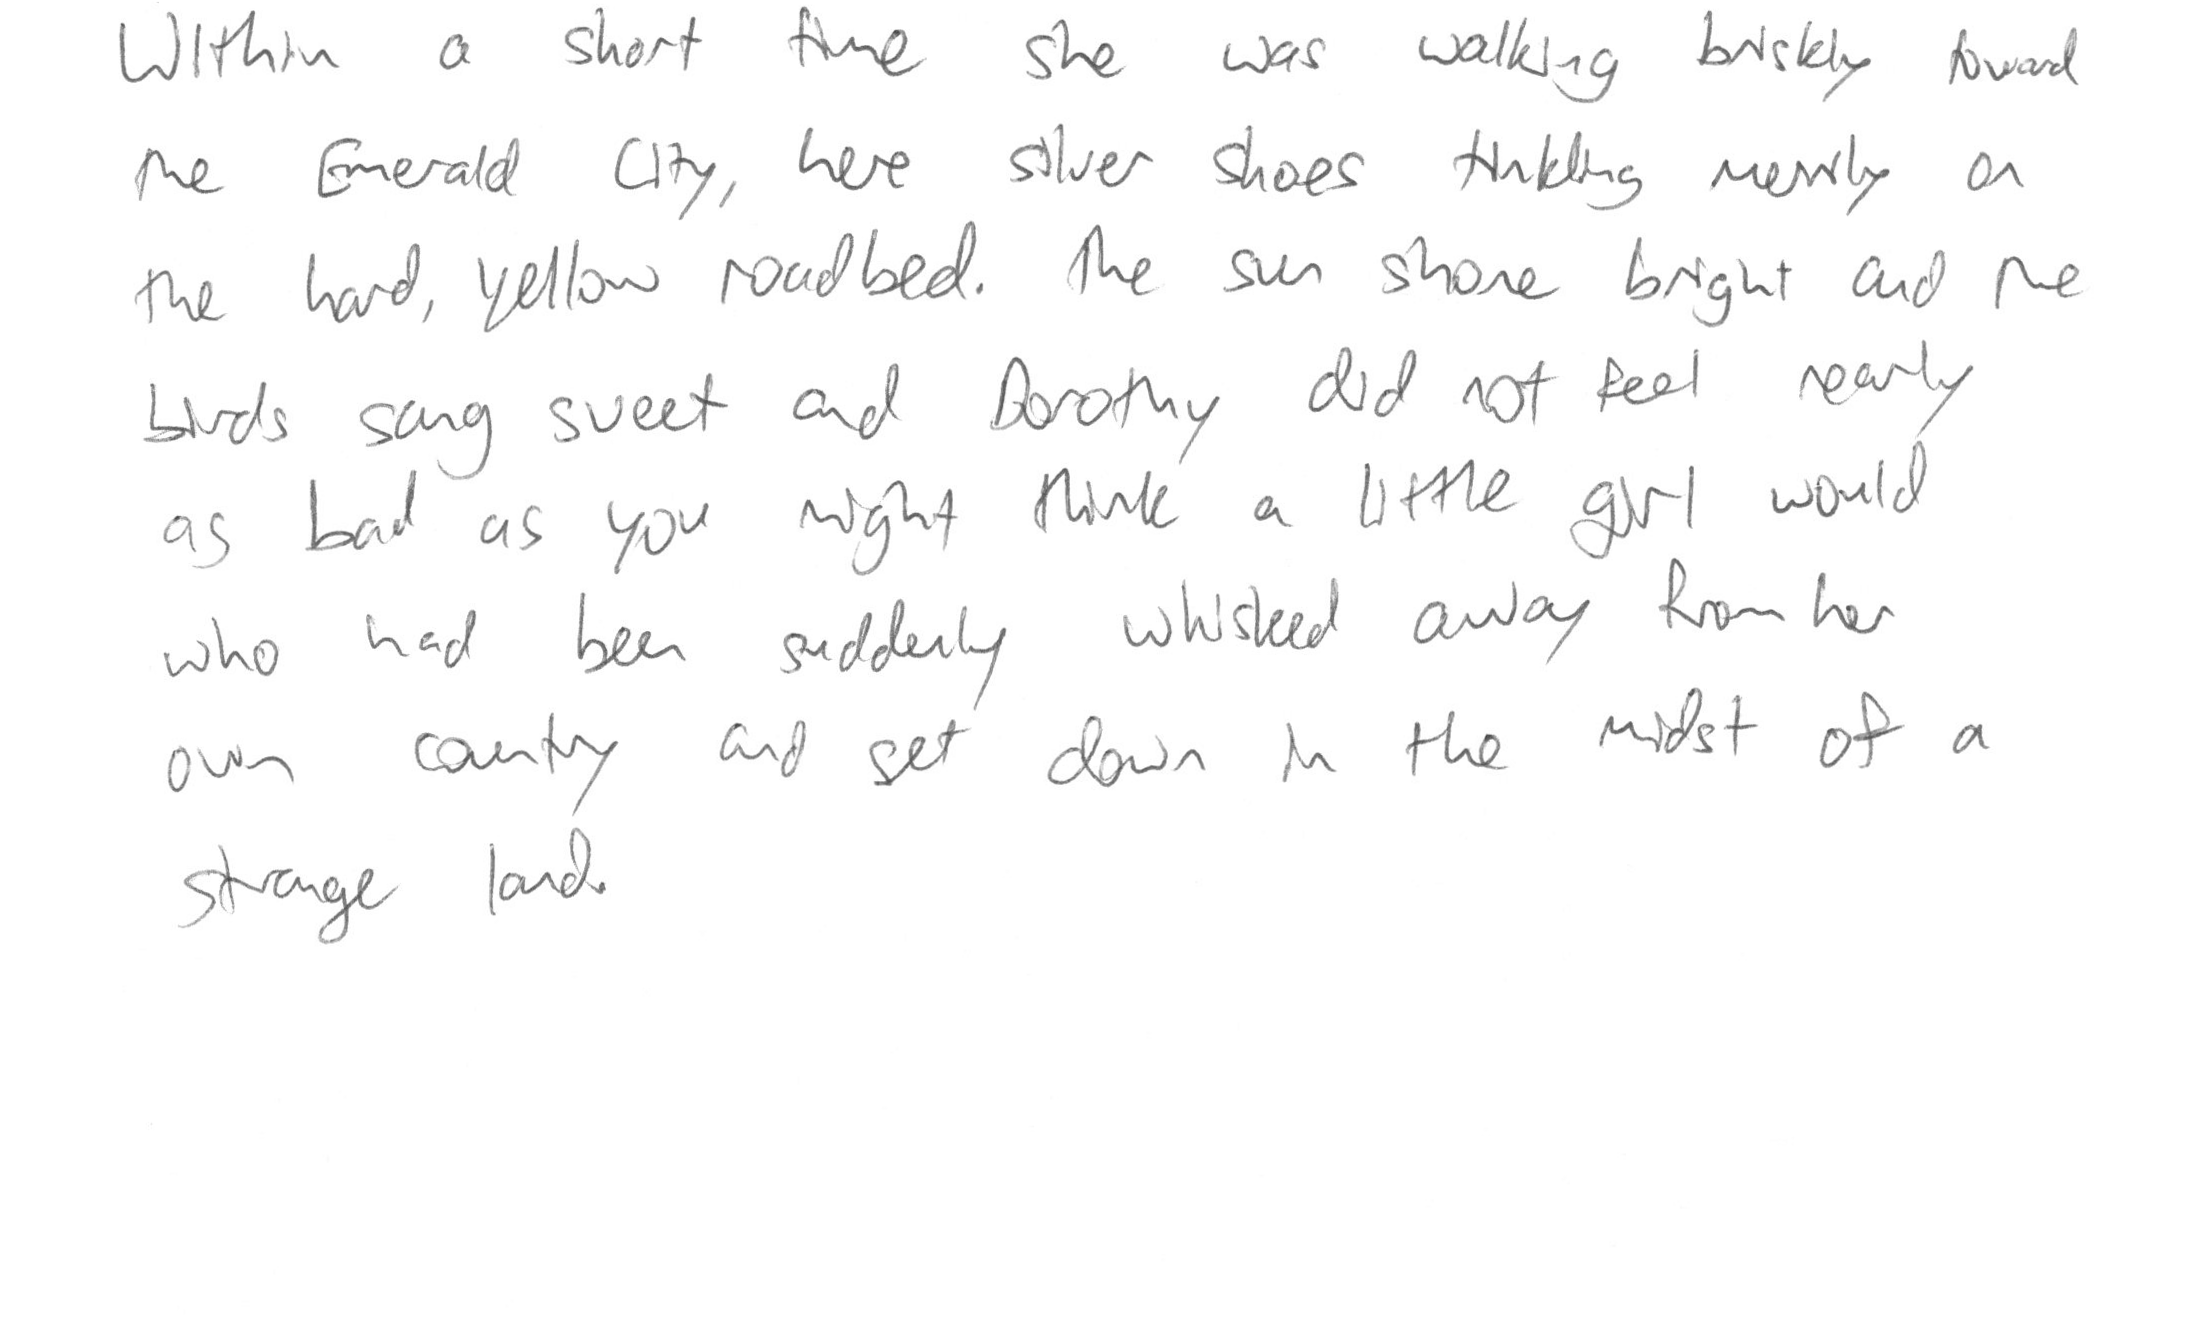 Within a short time she was walking briskly toward
the Emerald City, here silver shoes tinkling merrily on
the hard, yellow roadbed. The sun shone bright and the
birds sang sweet and Dorothy did not feel nearly
as bad as you might think a little girl would
who had been suddenly whisked away from her
own country and set down in the midst of a
strange land.